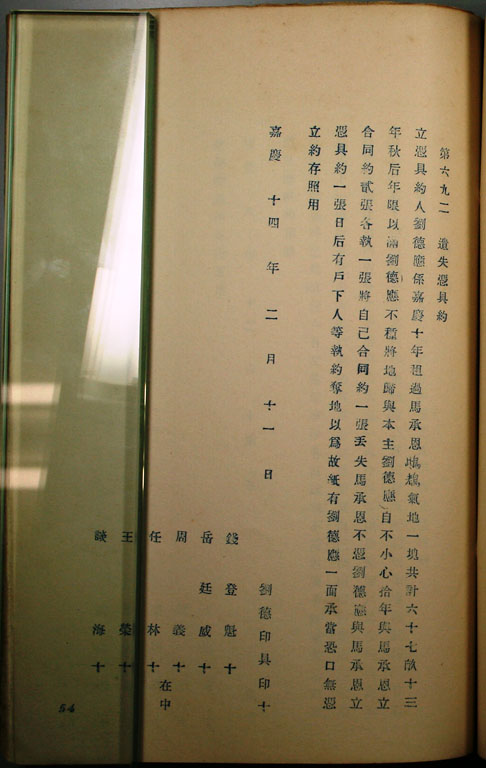 第六九二　遺失憑具約
立憑具約人劉德應係嘉慶十年租過馬承恩地氣地一塊共計六十七畝十三
年秋后年限以滿劉德應不種將地歸與本主劉德應自不小心拾年與馬承恩立
合同約貳張各執一張將自己合同約一張丟失馬承恩不憑劉德應與馬承恩立
憑具約一張日后有戶下人等執約奪地以爲故紙有劉德應一面承當恐口無憑
立約存照用
嘉慶十四年二月十一日
劉德印具印十
錢登魁十
岳廷威十
周義十
任林十
王榮十
海十
在中
54